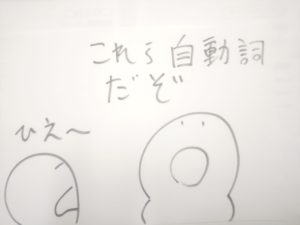 これら自動詞
だぞ
ひえ〜